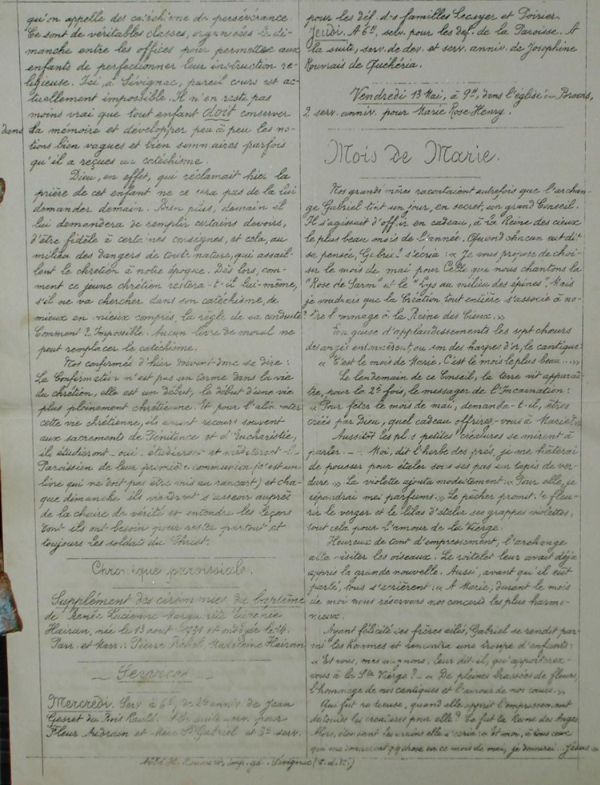 qu'on appelle des catéchisme de persévérance.
Ce sont de véritables classes, organisées le di-
manche entre les offices pour permettre aux
enfants de perfectionner leur instruction re-
ligieuse. Ici à Sévignac, pareil cours est ac-
tuellement impossible. Il n'en reste pas
moins vrai que tout enfant doit conserver
dans sa mémoire et développer peu à peu les no-
tions bien vagues et bien sommaires parfois
qu'il a reçues au catéchisme.
Dieu, en effet, qui réclamait hier la
prière de cet enfant ne va pas de la lui
demander demain. Bien plus, demain il
lui demandera de remplir certains devoirs,
d'être fidèle à certaines consignes, et cela, au
milieu des dangers de toute nature, qui assail-
lent le chrétien à notre époque. Dès lors, com-
ment ce jeune chrétien restera-t-il lui-même,
s'il ne va chercher dans son catéchisme, de
mieux en mieux compris, la règle de sa conduite
Comment? Impossible. Aucun livre de moral ne
peut remplacer le catéchisme.
Nos confirmés d'hier doivent donc se dire:
La Confirmation n'est pas un terme dans la vie
du chrétien, elle est un début, le début d'une vie
plus pleinement chrétienne. Et pour
cette vie chrétienne, ils auront recours souvent
aux sacrements de Pénitence et d'Eucharistie,
ils étudieront - oui: étudieront et méditeront le
Paroissien de leur première communion (c'est un
livre qui ne doit pas être mis au rancart) et cha-
que dimanche ils viendront s'asseoir auprès
de la chaire de vérité et entendre les leçons
dont ils ont besoin pour rester partout et
toujours les soldats du Christ.
Chronique paroissiale.
Supplément des cérémonies du baptême
de Renée Lucienne Marguerite Eugénie
Hairan, née le 13 août 1931 et ondoyée le 16.
Parr. et Marr.: Pierre Rebel, Madeleine Hairan
Services
Mercredi. Serv. à 6h, de 2e anniv. de Jean
Gesret du
Fleur Audrain et Mère St Gabriel et 3e serv.
pour les déf. des familles Lecuyer et Poirier.
Jeudi. A 6h, serv. pour les déf. de la Paroisse. A
la suite, serv. de dev. et serv. anniv. de Josephine
Rouxrais de Quéhéria.
Vendredi 13 Mai, à 9h, dans l'église de Broons,
2e serv. anniv. pour Marie Rose Henry.
Mois de Marie.
Nos grands'mères racontaient autrefois que l'archan-
ge Gabriel tint un jour, en secret, un grand Conseil.
Il s'agissait d'offrir en cadeau, à la Reine des cieux
le plus beau mois de l'année. Quand chacun eut dit
sa pensée, Gabriel s'écria: « Je vous propose de choi-
sir le mois de mai pour Celle que nous chantons la
"Rose de Saron" et le "Lys au milieu des épines". Mais
je voudrais que la Création tout entière s'associe à no-
tre hommage à la Reine des Cieux. »
En guise d'applaudissements les sept chœurs
des anges entonnèrent, au son des harpes d'or, le cantique:
« C'est le mois de Marie. C'est le mois le plus beau.... »
Le lendemain de ce Conseil, la terre vit apparaî-
tre, pour la 2e fois, le messager de l'Incarnation:
« Pour fêter le mois de mai, demanda-t-il, êtres
créés par Dieu, quel cadeau offrirez-vous à Marie? »
Aussitôt les plus petites créatures se mirent à
parler. - « Moi, dit l'herbe des prés, je me hâterai
de pousser pour étaler sous ses pas un tapis de ver-
dure. » La violette ajouta modestement « Pour elle, je
répandrai mes parfums. » Le pêcher promit de fleu-
rir le verger et le lilas d'étaler ses grappes violettes,
tout cela pour l'amour de la Vierge.
Heureux de tant d'empressement, l'archange
alla visiter les oiseaux. Le roitelet leur avait déjà
appris la grande nouvelle. Aussi, avant qu'il eût
parlé, tous s'écrièrent: « A Marie, durant le mois
de mai nous réservons nos concerts les plus harmo-
nieux.
Ayant félicité ses frères ailés, Gabriel se rendit par-
mi les hommes et rencontra une troupe d'enfants:
« Et vous, mes mignons, leur dit-il, qu'apporterez-
vous à la Ste Vierge? » - « De pleines brassées de fleurs,
l'hommage de nos cantiques et l'amour de nos cœurs. »
Qui fut heureuse, quand elle apprit l'empressement
de toutes les créatures pour elle? Ce fut la Reine des Anges.
Alors, élevant les mains elle s'écria: « Et moi, à tous ceux
qui me donneront quelque chose en ce mois de mai, je donnerai... Jésus. »